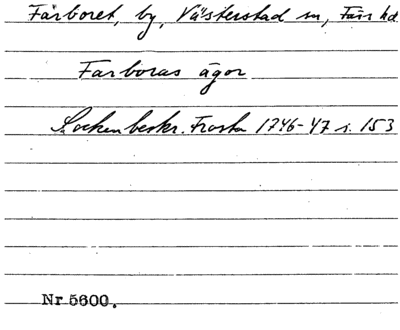 Färboret, by, Västerstad sn, Färs hd
Farboras ägor
Sockenbeskr. Frosta 1746-47 s. 153
Nr 5600.